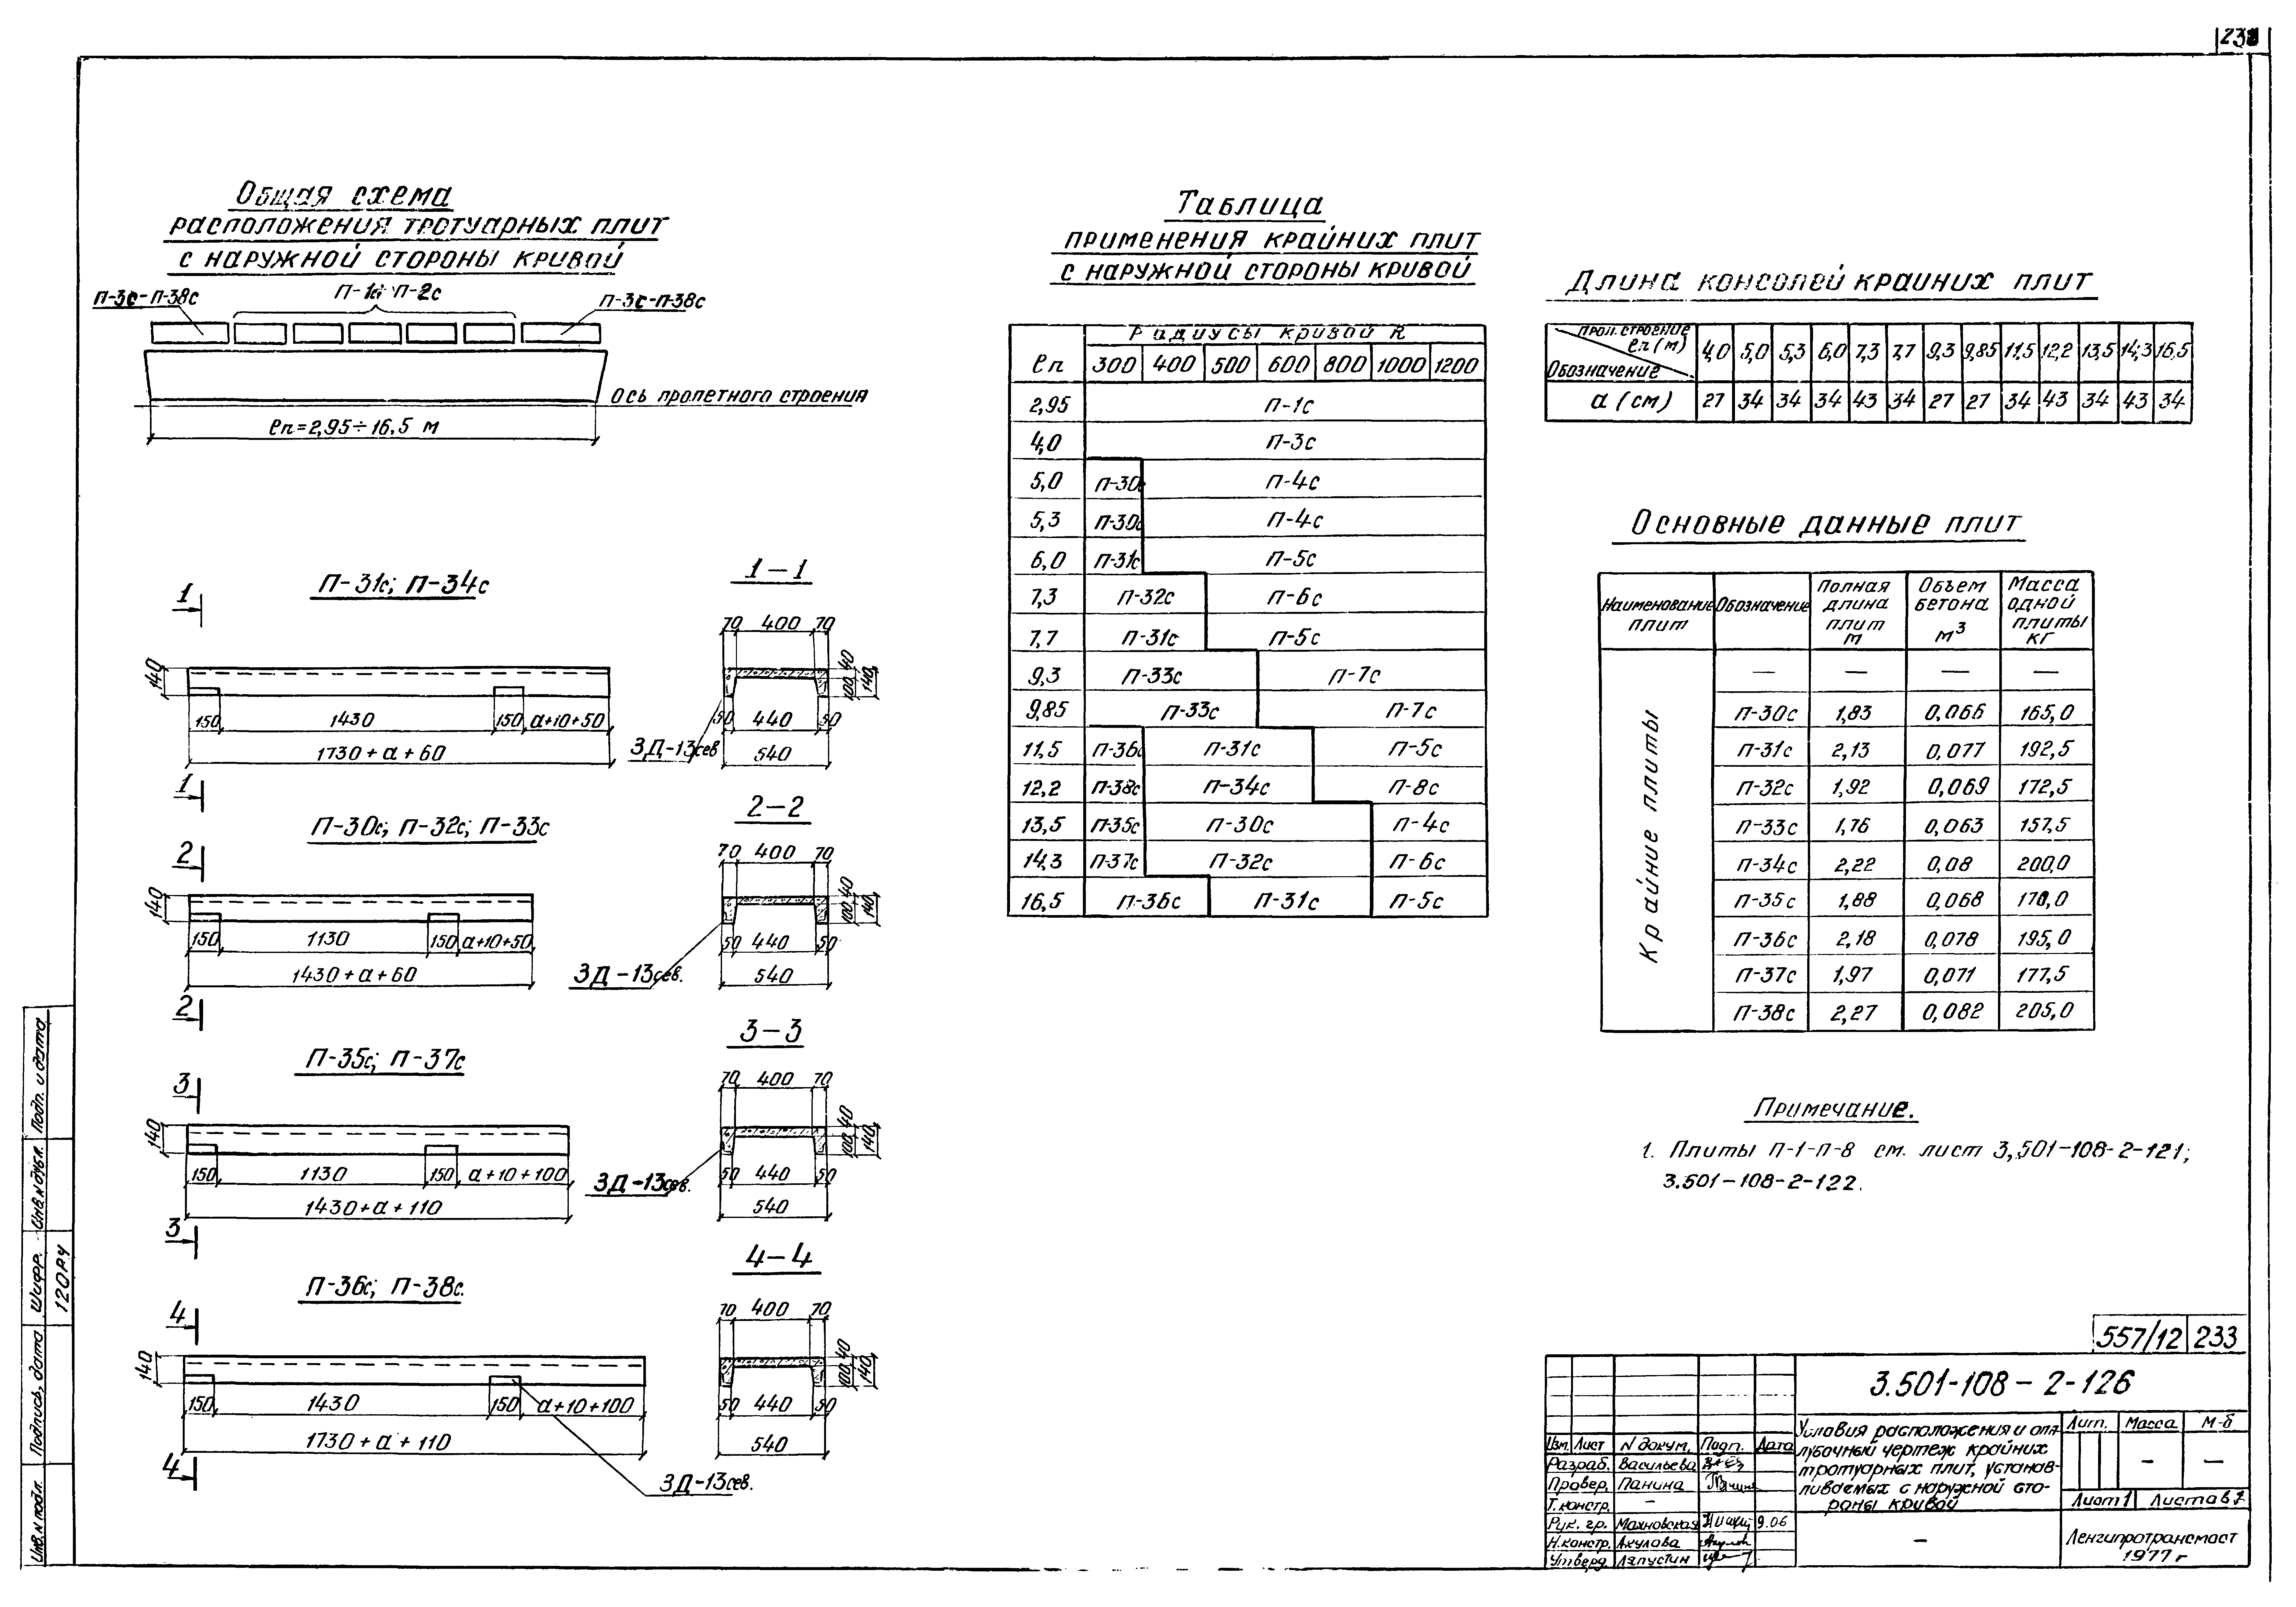 Общая схема
расположения тротуарных плит
с наружной стороны кривой
П-3с-П-38с
П-1с П-2с
П-3с-П-38с
Ось пролетного строения
ℓп=2,95÷16,5 м
Таблица
применения крайних плит
с наружной стороны кривой
ℓп Радиусы кривой R
300 400 500 600 800 1000 1200
2,95 П-1с
4,0 П-3с
5,0 П-30с П-4с
5,3 П-30с П-4с
6,0 П-31с П-5с
7,3 П-32с П-6с
7,7 П-31с П-5с
9,3 П-33с П-7с
9,85 П-33с П-7с
11,5 П-36с П-31с П-5с
12,2 П-38с П-34с П-8с
13,5 П-35с П-30с П-4с
14,3 П-37с П-32с П-6с
16,5 П-36с П-31с П-5с
Длина консолей крайних плит
прол. строение ℓп (м)
Обозначение
4,0 5,0 5,3 6,0 7,3 7,7 9,3 9,85 11,5 12,2 13,5 14,3 16,5
a (см) 27 34 34 34 43 34 27 27 34 43 34 43 34
Основные данные плит
Наименование плит Обозначение Полная длина плит м Объем бетона м³ Масса одной плиты кг
Крайние плиты
— — — —
П-30с 1,83 0,066 165,0
П-31с 2,13 0,077 192,5
П-32с 1,92 0,069 172,5
П-33с 1,76 0,063 157,5
П-34с 2,22 0,08 200,0
П-35с 1,88 0,068 170,0
П-36с 2,18 0,078 195,0
П-37с 1,97 0,071 177,5
П-38с 2,27 0,082 205,0
Примечание.
1. Плиты П-1-П-8 см. лист 3,501-108-2-121;
3.501-108-2-122.
П-31с; П-34с
1
140
150 1430 150 a+10+50
1730+a+60
1
1-1
70 400 70
40
100
140
50 440 50
540
ЗД-13сев
П-30с; П-32с; П-33с
2
140
150 1130 150 a+10+50
1430+a+60
2
2-2
70 400 70
40
100
140
50 440 50
540
ЗД-13сев.
П-35с; П-37с
3
140
150 1130 150 a+10+100
1430+a+110
3
3-3
70 400 70
40
100
140
50 440 50
540
ЗД-13сев.
П-36с; П-38с.
4
140
150 1430 150 a+10+100
1730+a+110
4
4-4
70 400 70
40
100
140
50 440 50
540
ЗД-13сев.
557/12 233
3.501-108-2-126
Условия расположения и опа-
лубочный чертеж крайних
тротуарных плит, устанав-
ливаемых с наружной сто-
роны кривой
Лит. Масса М-б
— —
Лист 1 Листов 2
—
Ленгипротрансмост
1977г
Изм. Лист N докум. Подп. Дата
Разраб. Васильева
Провер. Панина
Т. констр. —
Рук. гр. Махновская 9.06
Н.констр. Акулова
Утверд. Ляпустин
Подп. и дата
Инв.N дубл.
Шифр. 120РЧ
Подпись, дата
Инв.N подл.